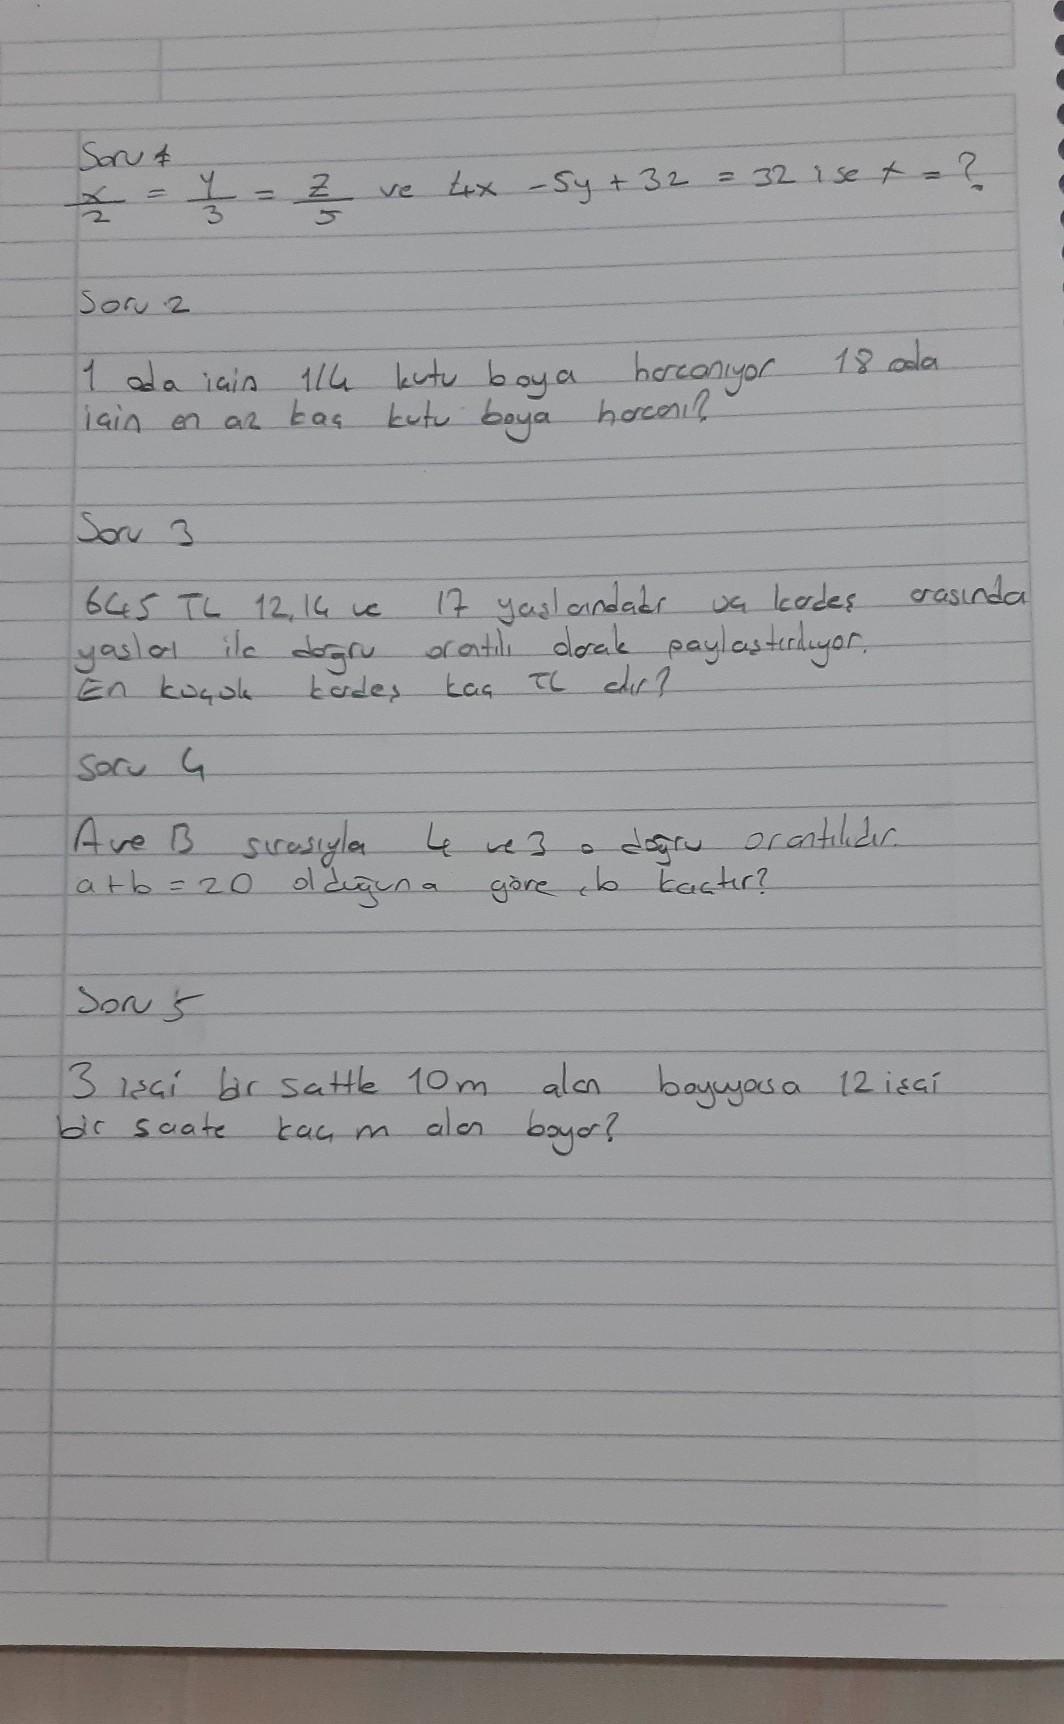 Soru 1
x/2 = y/3 = z/5 ve 4x - 5y + 3z = 32 ise x = ?
Soru 2
1 oda için 1/4 kutu boya harcanıyor 18 oda
için en az kaç kutu boya harcanı?
Soru 3
645 TL 12, 14 ve 17 yaslarındakı üç kardeş arasında
yasları ile doğru orantılı olarak paylastırılıyor.
En küçük kardeş kaç TL dır?
Soru 4
A ve B sırasıyla 4 ve 3 e doğru orantılıdır.
a + b = 20 olduğuna göre, b kaçtır?
Soru 5
3 işçi bir sattle 10 m alan boyuyorsa 12 işçi
bir saate kaç m alan boyar?